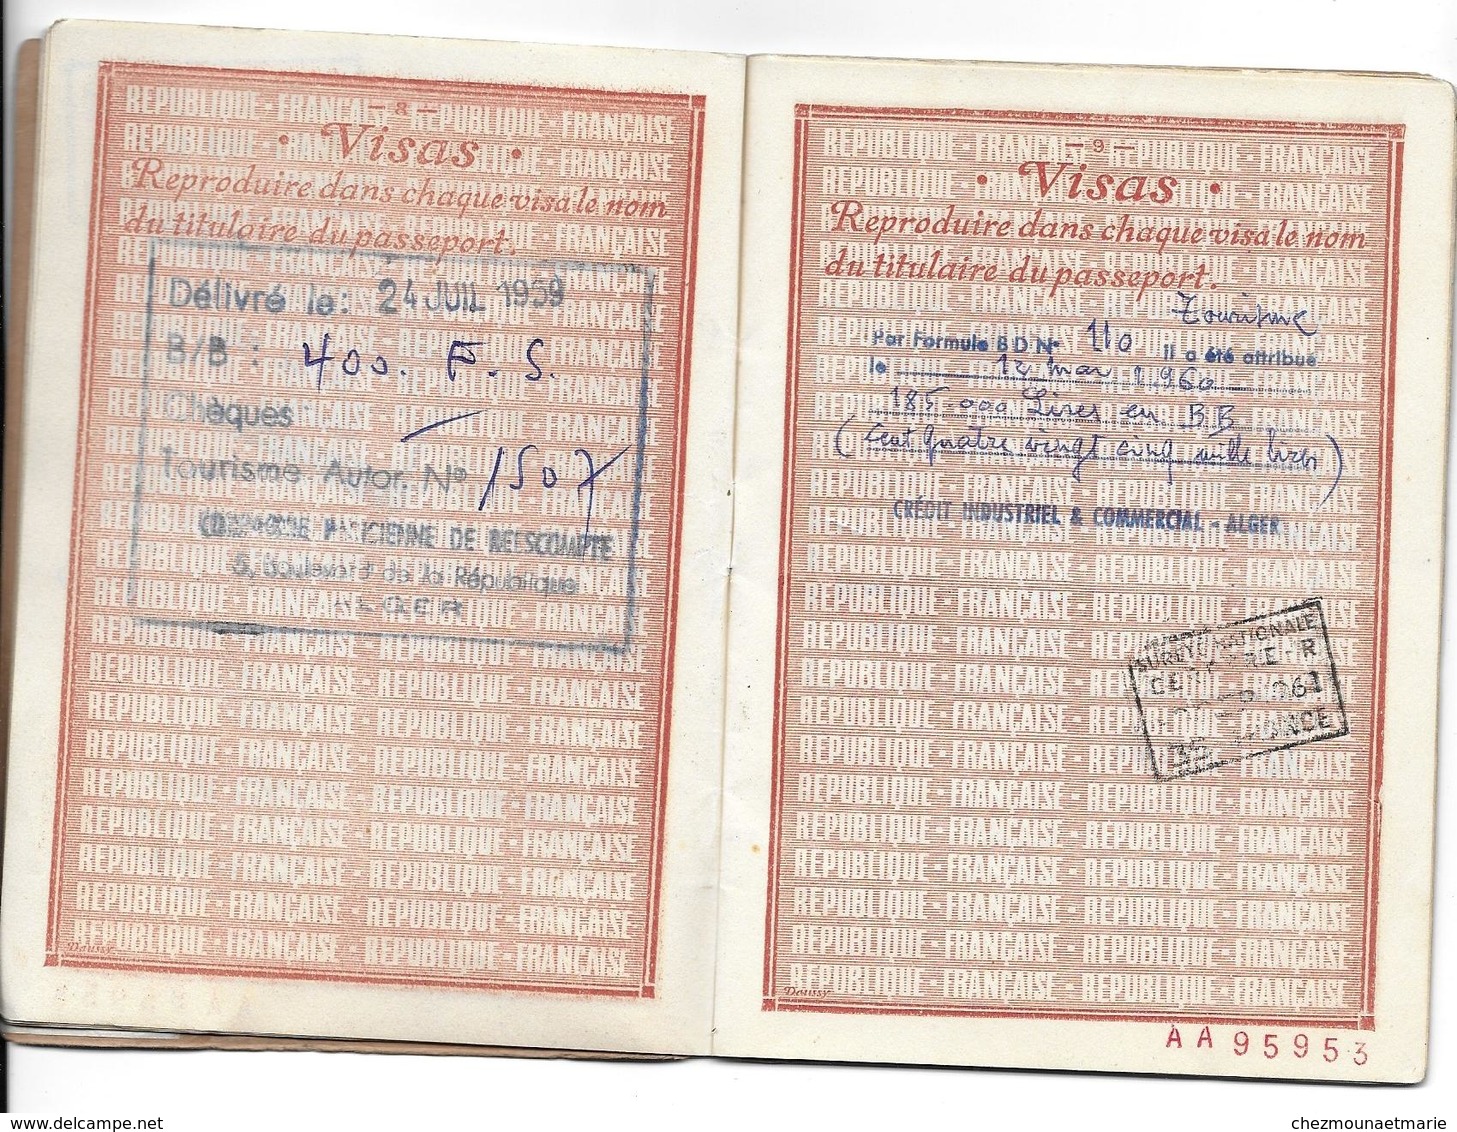 - 8 -
• Visas •
Reproduire dans chaque visa le nom
du titulaire du passeport.
Délivré le : 24 JUIL 1959
B/B : 400. F. S.
Chèques
Tourisme Autor. N° 1507
COMPAGNIE PARISIENNE DE REESCOMPTE
5, Boulevard de la République
ALGER
REPUBLIQUE - FRANÇAISE - REPUBLIQUE - FRANÇAISE
Daussy
- 9 -
• Visas •
Reproduire dans chaque visa le nom
du titulaire du passeport.
Tourisme
Par Formule B D N° 110 il a été attribué
le 12 mar 1960
185 000 Lires en BB
(cent quatre vingt cinq mille lires)
CRÉDIT INDUSTRIEL & COMMERCIAL - ALGER
SURETE NATIONALE
FRANCE
REPUBLIQUE - FRANÇAISE - REPUBLIQUE - FRANÇAISE
Daussy
AA95953
chezmounaetmarie